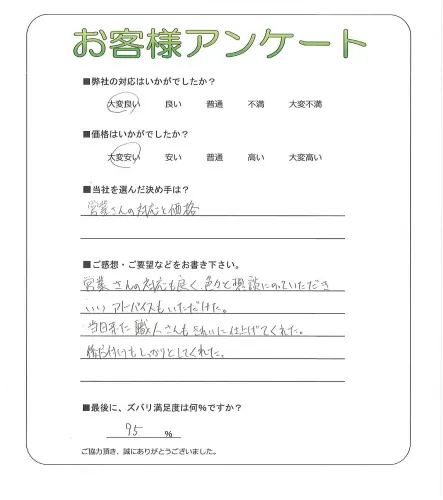 お客様アンケート
■弊社の対応はいかがでしたか?
大変良い 良い 普通 不満 大変不満
■価格はいかがでしたか?
大変安い 安い 普通 高い 大変高い
■当社を選んだ決め手は?
営業さんの対応と価格
■ご感想・ご要望などをお書き下さい。
営業さんの対応も良く、色々と相談にのっていただき
いいアドバイスもいただけた。
当日来た職人さんもきれいに仕上げてくれた。
後片付けもしっかりとしてくれた。
■最後に、ズバリ満足度は何%ですか?
95 %
ご協力頂き、誠にありがとうございました。